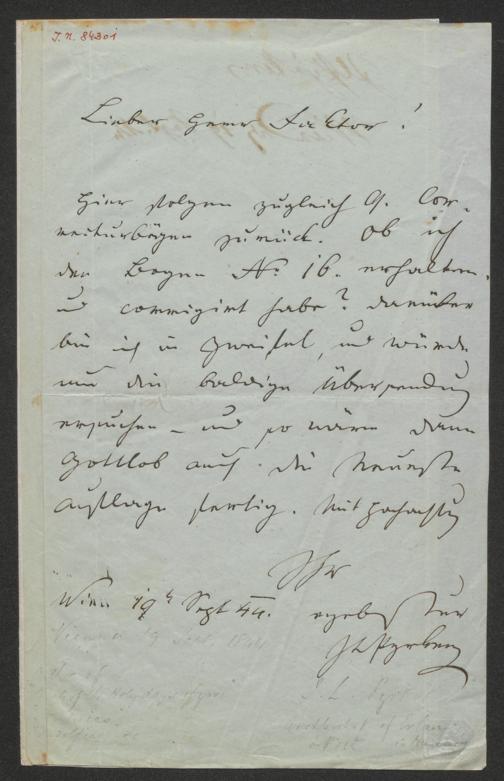 J. N. 84301
Lieber Herr Faktor!
Hier folgen zugleich 9. Cor-
recturbögen zurück. Ob ich
den Bogen No 16. erhalten
und corrigirt habe? darüber
bin ich in Zweifel, und würde
um die baldige Übersendung
ersuchen – und so wäre dann
Gottlob auch die Neueste
Auflage fertig. Mit Hochachtung
Ihr
Wien 19t Sept 44. ergebenster
JLPyrker
Vienna 19 Sept. 1844
J. L. Pyrker